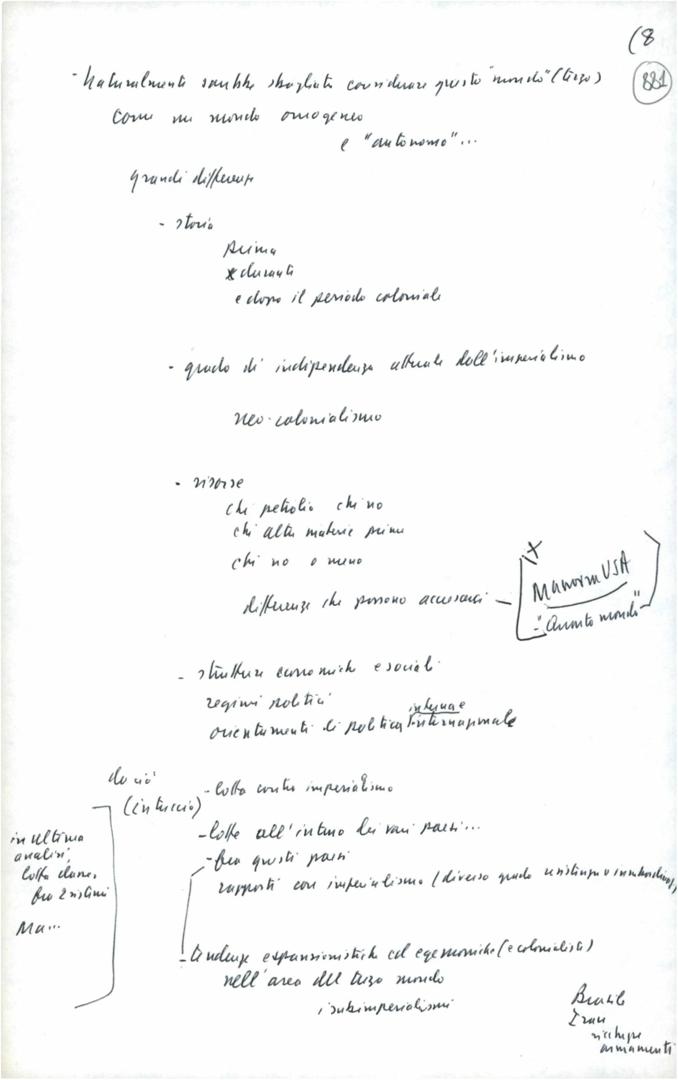 (8
881
- Naturalmente sarebbe sbagliato considerare questo "mondo" (terzo)
come un mondo omogeneo
e "autonomo"...
grandi differenze
- storia
prima
durante
e dopo il periodo coloniale
- grado di indipendenza attuale dall'imperialismo
neo-colonialismo
- risorse
chi petrolio chi no
chi altre materie prime
chi no o meno
differenze che possono accrescersi -
x
Manovra USA
- "Quarto mondo"
- strutture economiche e sociali
regimi politici
orientamenti di politica interna e internazionale
da ciò
(intreccio)
- lotta contro imperialismo
- lotte all'interno dei vari paesi...
- fra questi paesi
rapporti con imperialismo (diverso grado
- tendenze espansionistiche ed egemoniche (e colonialiste)
nell'area del terzo mondo
i subimperialismi
in ultima
analisi,
lotta classe,
fra 2 sistemi
Ma...
Brasile
Iran
armamenti